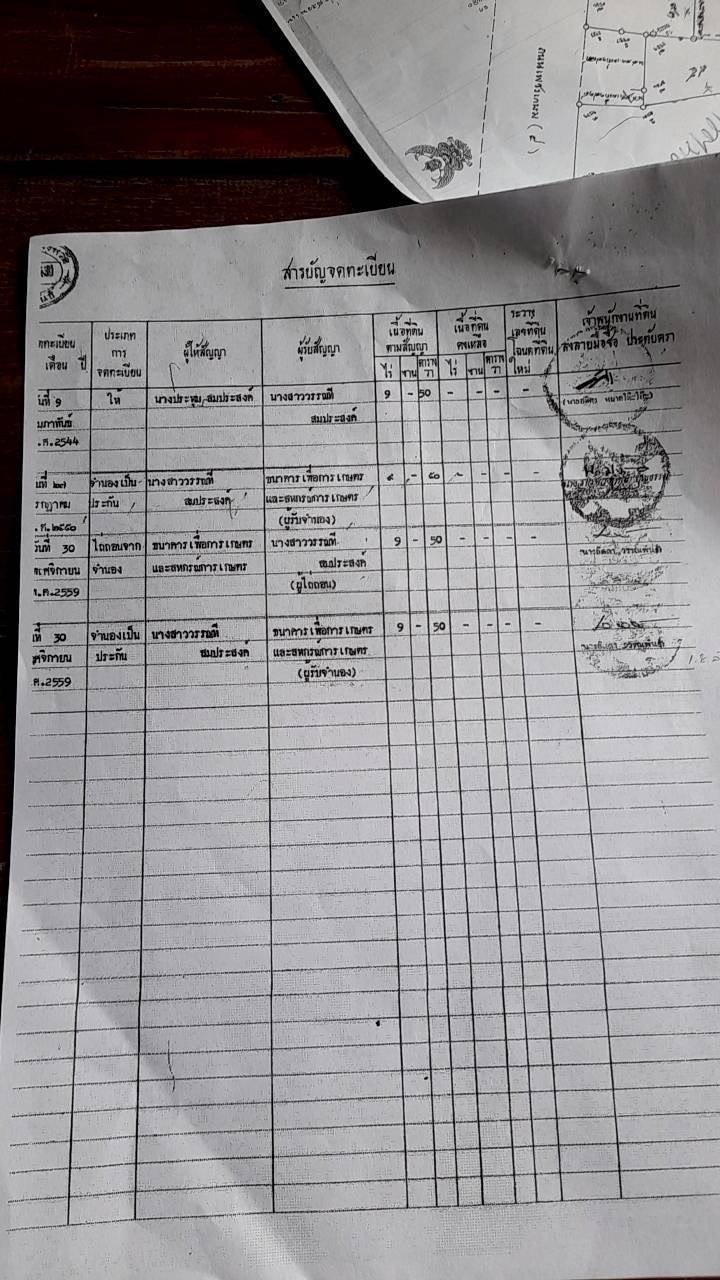 ถนนเพชรเกษม (ส)
สารบัญจดทะเบียน
ดทะเบียน
เดือน ปี
ประเภท
การ
จดทะเบียน
ผู้ให้สัญญา
ผู้รับสัญญา
เนื้อที่ดิน
ตามสัญญา
ไร่ งาน ตาราง
วา
เนื้อที่ดิน
คงเหลือ
ไร่ งาน ตาราง
วา
ระวาง
เลขที่ดิน
โฉนดที่ดิน
ใหม่
เจ้าพนักงานที่ดิน
ลงลายมือชื่อ ประทับตรา
นที่ 9 ให้ นางประทุม สมประสงค์ นางสาววรรณี 9 - 50 - - - -
มภาพันธ์ สมประสงค์
.ศ.2544
นที่ ๒๗ จำนองเป็น นางสาววรรณี ธนาคารเพื่อการเกษตร ๙ - ๕๐ - - - -
ประกัน สมประสงค์ และสหกรณ์การเกษตร
.ศ.๒๕๕๐ (ผู้รับจำนอง)
วันที่ 30 ไถ่ถอนจาก ธนาคารเพื่อการเกษตร นางสาววรรณี 9 - 50 - - - -
ฤศจิกายน จำนอง และสหกรณ์การเกษตร สมประสงค์
.ศ.2559 (ผู้ไถ่ถอน)
ที่ 30 จำนองเป็น นางสาววรรณี ธนาคารเพื่อการเกษตร 9 - 50 - - - -
ศจิกายน ประกัน สมประสงค์ และสหกรณ์การเกษตร
ศ.2559 (ผู้รับจำนอง)